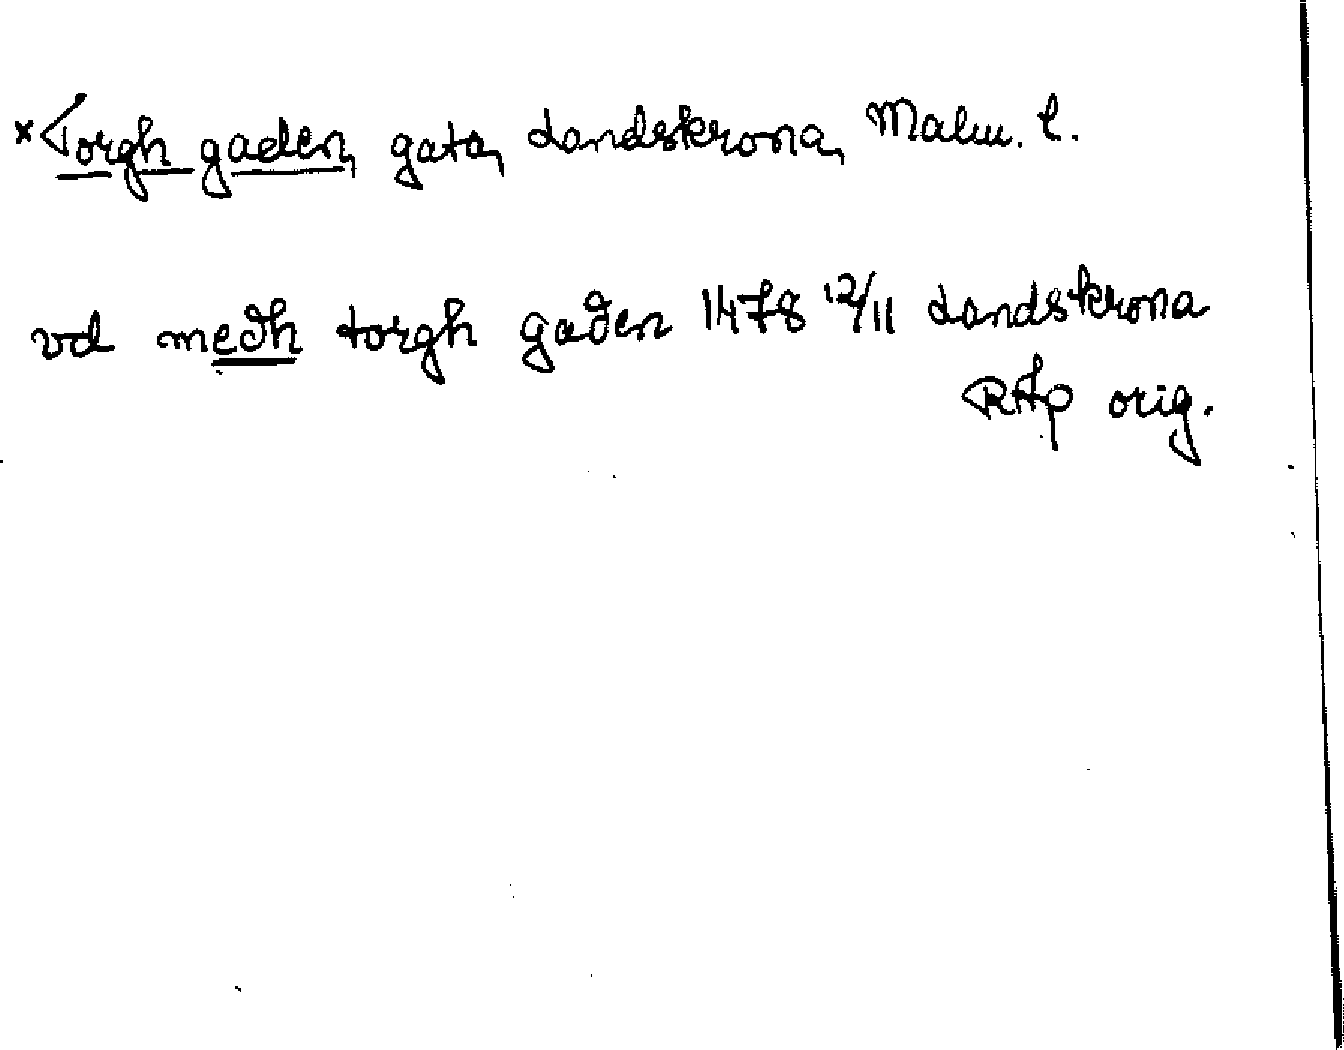 *Torgh gaden, gata, Landskrona, Malm. l.
vd medh torgh gaden 1478 12/11 Landskrona
RAp orig.